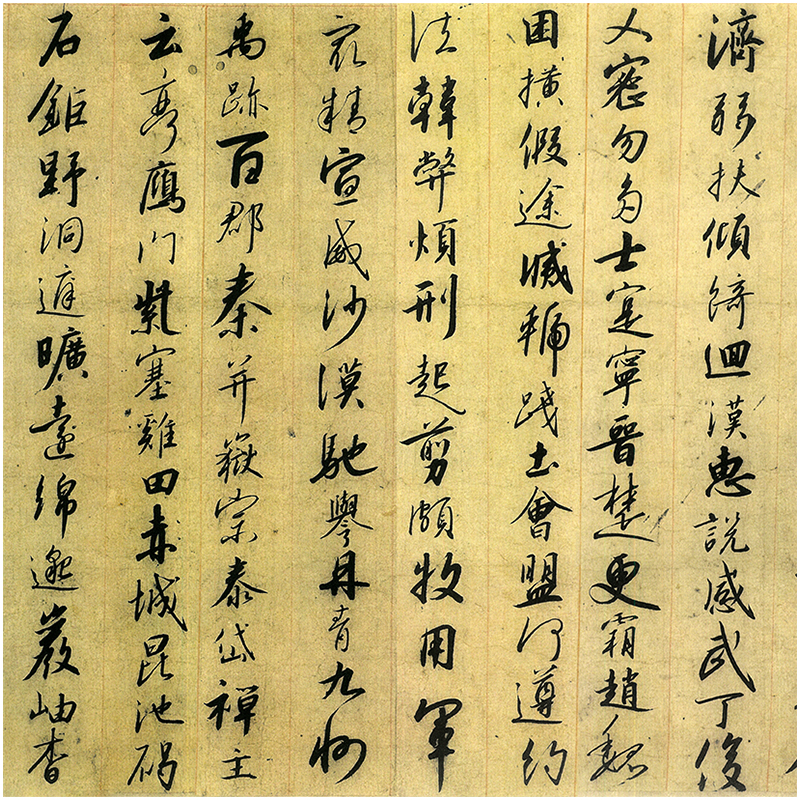 濟弱扶傾綺迴漢惠說感武丁俊
乂密勿多士寔寧晉楚更霸趙魏
困橫假途滅虢踐土會盟何遵約
法韓弊煩刑起翦頗牧用軍
最精宣威沙漠馳譽丹青九州
禹跡百郡秦并嶽宗泰岱禪主
云亭鴈門紫塞雞田赤城昆池碣
石鉅野洞庭曠遠綿邈巖岫杳